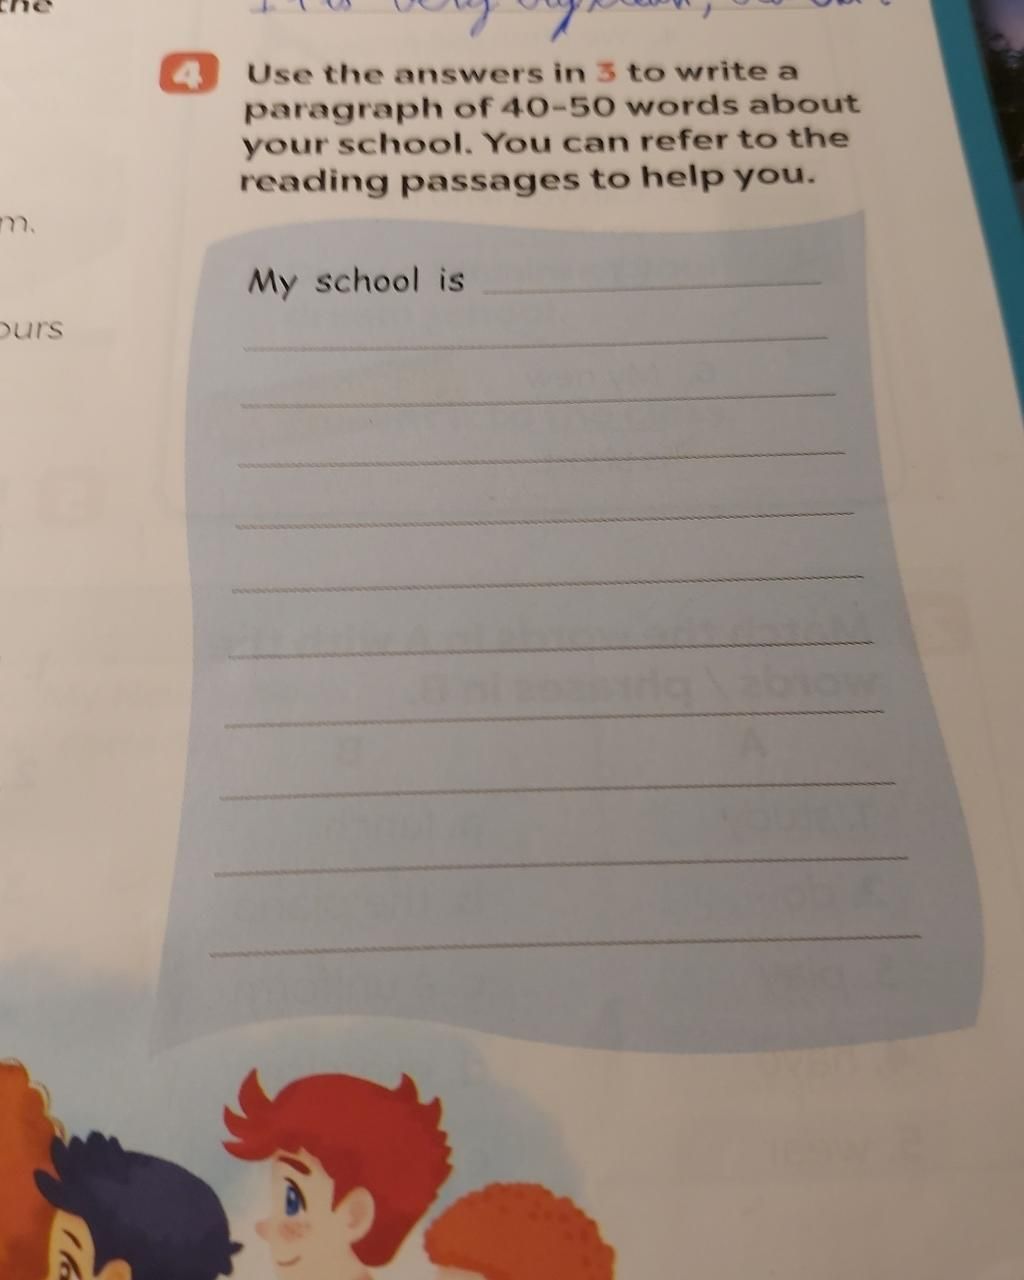 the
very
4 Use the answers in 3 to write a
paragraph of 40-50 words about
your school. You can refer to the
reading passages to help you.
m.
ours
My school is